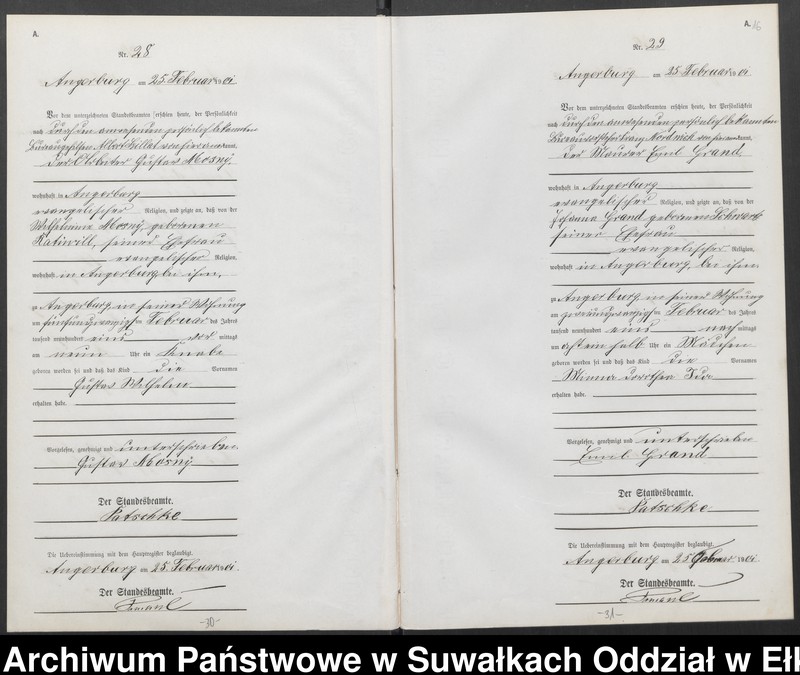 A.
Nr. 28
Angerburg am 25. Februar 1901
Vor dem unterzeichneten Standesbeamten erschien heute, der Persönlichkeit
nach durch den anwesenden persönlich bekannten
Büreaugehilfen Albert von hier anerkannt,
der Gustav Mosny
wohnhaft in Angerburg
evangelischer Religion, und zeigte an, daß von der
Wilhelmine Mosny, geborenen
seiner Ehefrau
evangelischer Religion,
wohnhaft in Angerburg, bei ihm,
zu Angerburg, in seiner Wohnung
am fünfundzwanzigsten Februar des Jahres
tausend neunhundert eins vor mittags
um neun Uhr ein Knabe
geboren worden sei und daß das Kind die Vornamen
Gustav Wilhelm
erhalten habe.
Vorgelesen, genehmigt und unterschrieben
Gustav Mosny
Der Standesbeamte.
Patschke
Die Uebereinstimmung mit dem Hauptregister beglaubigt.
Angerburg am 25. Februar 1901.
Der Standesbeamte.
-30-
A. 16
Nr. 29
Angerburg am 25. Februar 1901
Vor dem unterzeichneten Standesbeamten erschien heute, der Persönlichkeit
nach durch den anwesenden persönlich bekannten
Büreauvorsteher von hier anerkannt,
der Maurer Emil Grand
wohnhaft in Angerburg
evangelischer Religion, und zeigte an, daß von der
Johanna Grand geborenen
seiner Ehefrau
evangelischer Religion,
wohnhaft in Angerburg, bei ihm
zu Angerburg, in seiner Wohnung
am zweiundzwanzigsten Februar des Jahres
tausend neunhundert eins nach mittags
um achteinhalb Uhr ein Mädchen
geboren worden sei und daß das Kind die Vornamen
Minna Dorothea Ida
erhalten habe.
Vorgelesen, genehmigt und unterschrieben
Emil Grand
Der Standesbeamte.
Patschke
Die Uebereinstimmung mit dem Hauptregister beglaubigt.
Angerburg am 25 Februar 1901.
Der Standesbeamte.
-31-
Archiwum Państwowe w Suwałkach Oddział w Ełk